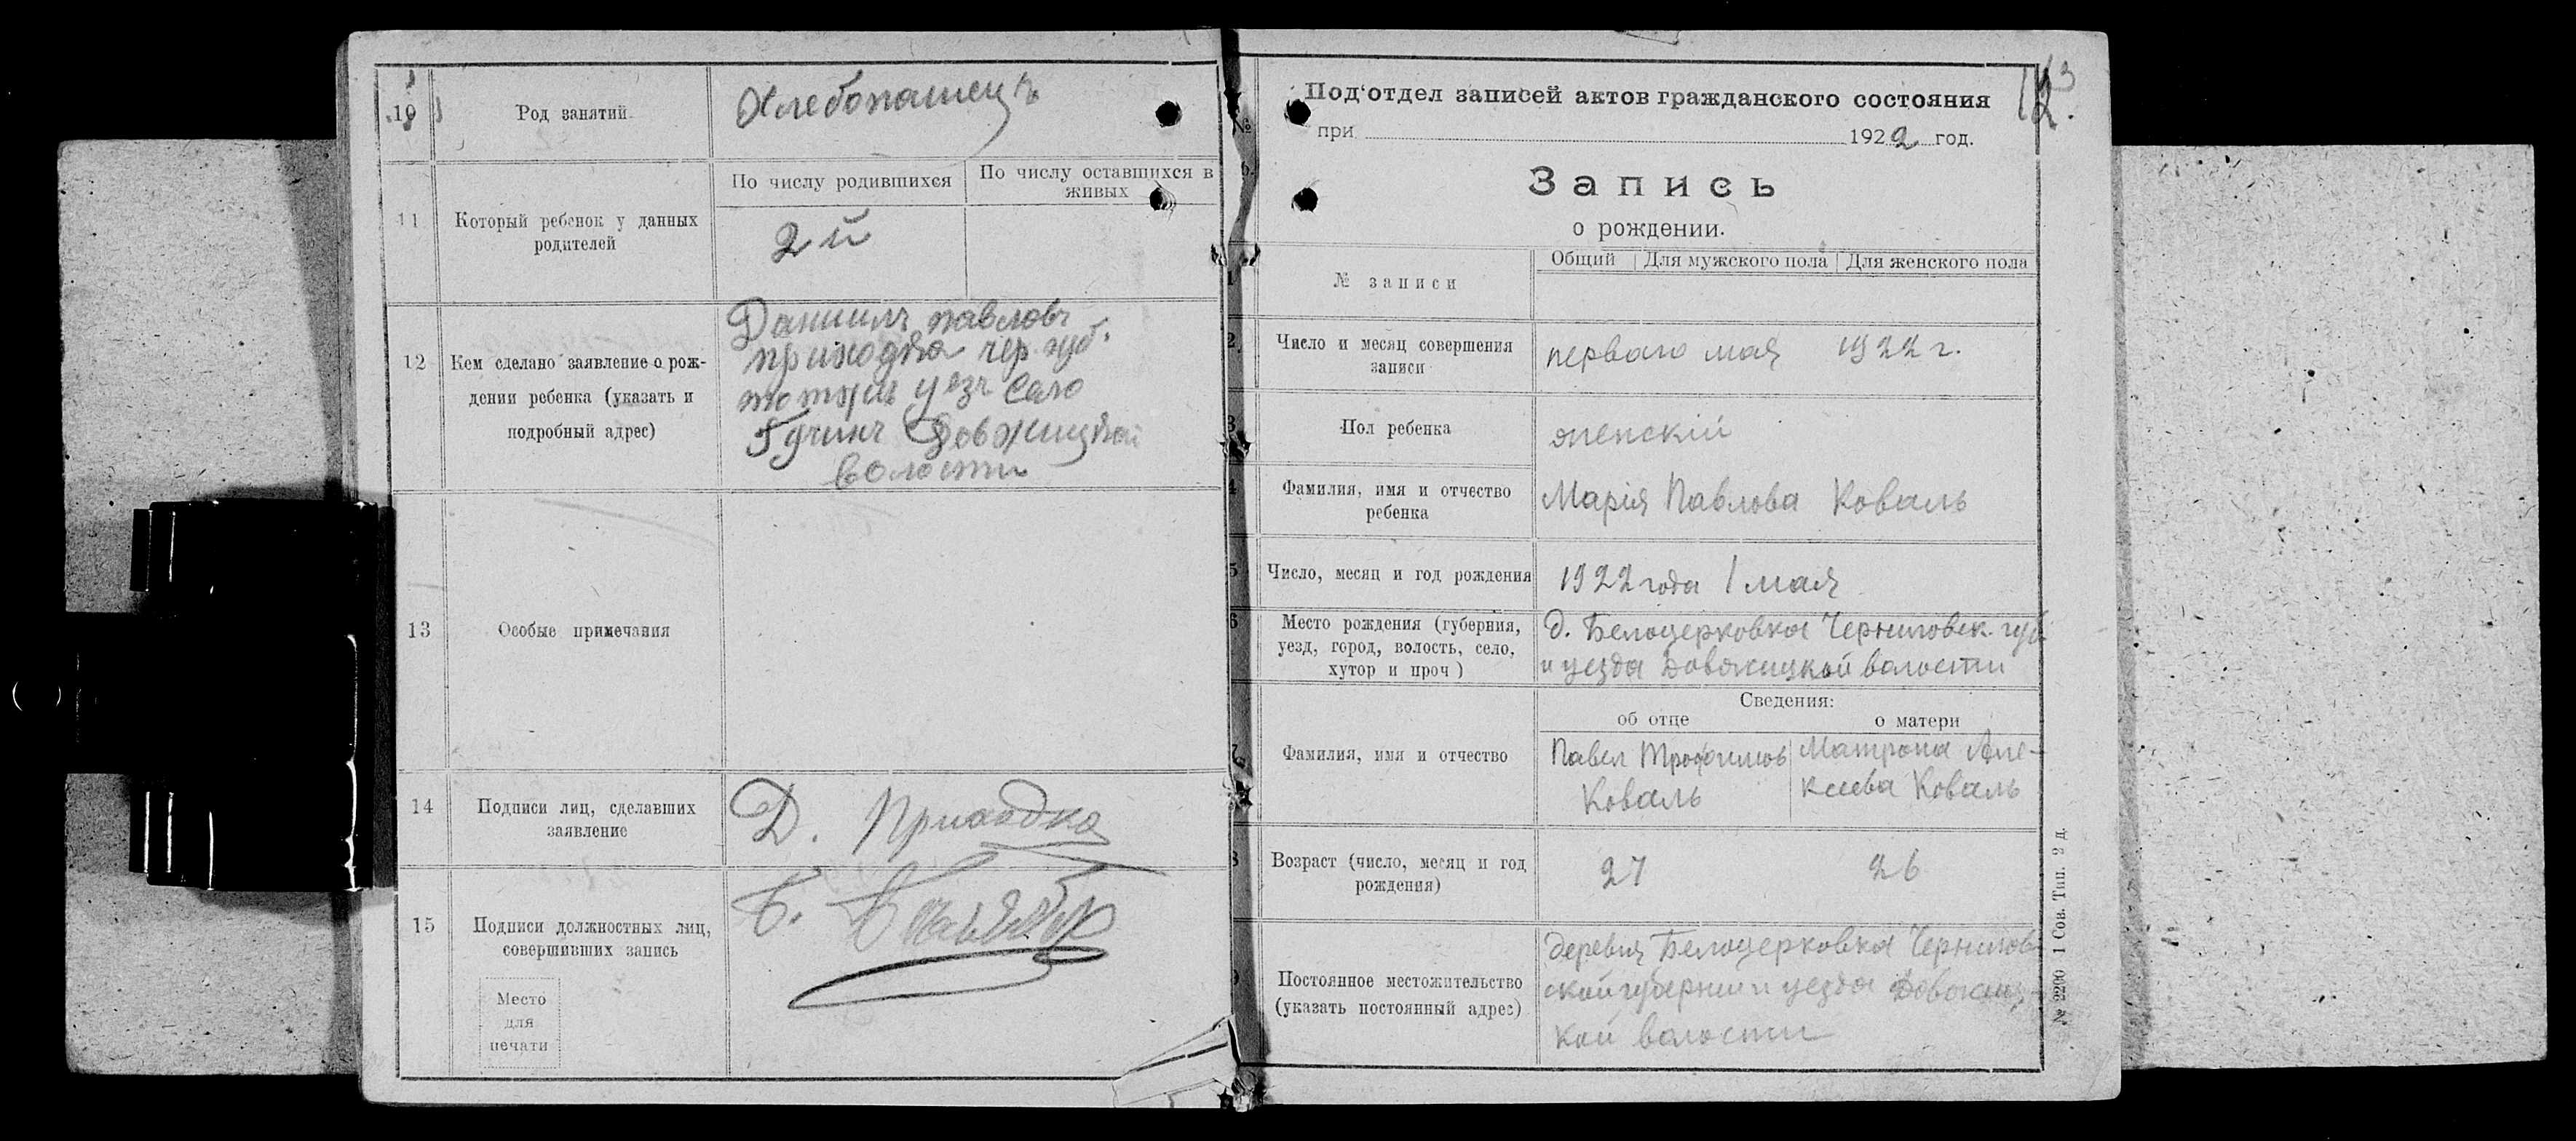 10
Род занятий
Хлебопашецъ
11
Который ребенок у данных
родителей
По числу родившихся
По числу оставшихся в
живых
2й
12
Кем сделано заявление о рож-
дении ребенка (указать и
подробный адрес)
Даниилъ павловъ
приходка чер. губ.
тотже уезъ Село
Гучинъ Довжицкой
волости
13
Особые примечания
14
Подписи лиц, сделавших
заявление
Д. Приходка
15
Подписи должностных лиц,
совершивших запись
Б.
Место
для
печати
Под'отдел записей актов гражданского состояния
при 1922 год.
Запись
о рождении.
№ записи
Общий Для мужского пола Для женского пола
Число и месяц совершения
записи
перваго мая 1922 г.
Пол ребенка
женскій
Фамилия, имя и отчество
ребенка
Марія Павлова Коваль
Число, месяц и год рождения
1922 года 1 мая
Место рождения (губерния,
уезд, город, волость, село,
хутор и проч)
д. Белоцерковка Черниговск. губ.
и уезда Довжицкой волости
Сведения:
об отце
о матери
Фамилия, имя и отчество
Павел Трофимов
Коваль
Матрона Але-
ксеева Коваль
Возраст (число, месяц и год
рождения)
27
26
Постоянное местожительство
(указать постоянный адрес)
деревня Белоцерковка Чернигов
ской губернии и уезда Довжиц-
кой волости
№ 2200 1 Сов. Тип. 2 д.